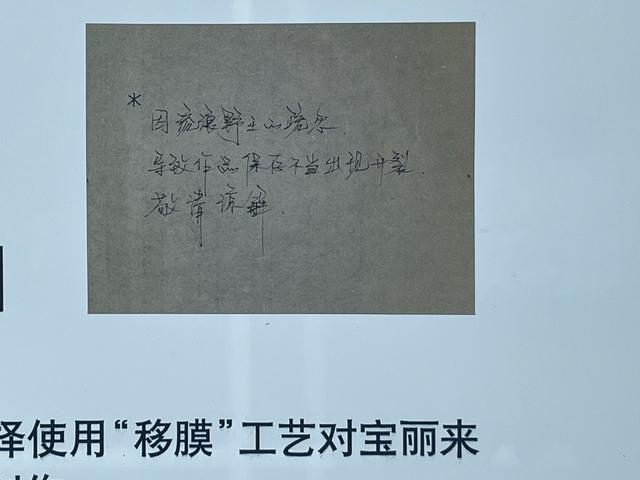 *
因疏浪野主的疏忽.
导致作品保存不当出现开裂.
敬请谅解.
择使用“移膜”工艺对宝丽来